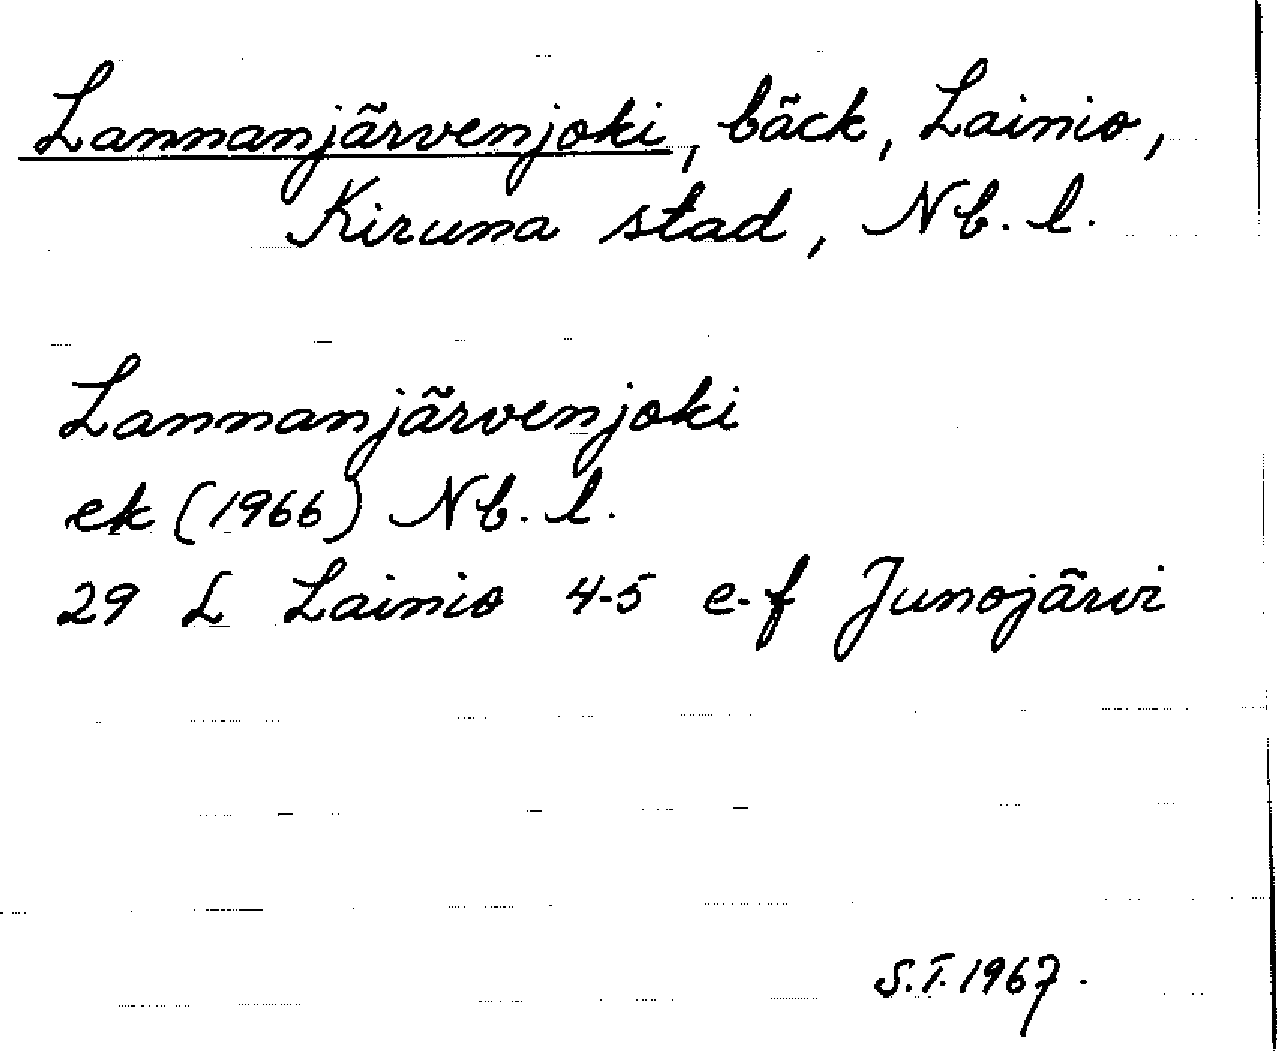 Lannanjärvenjoki, bäck, Lainio,
Kiruna stad, Nb. l.
Lannanjärvenjoki
ek (1966) Nb. l.
29 L Lainio 4-5 e-f Junojärvi
S.T. 1967.